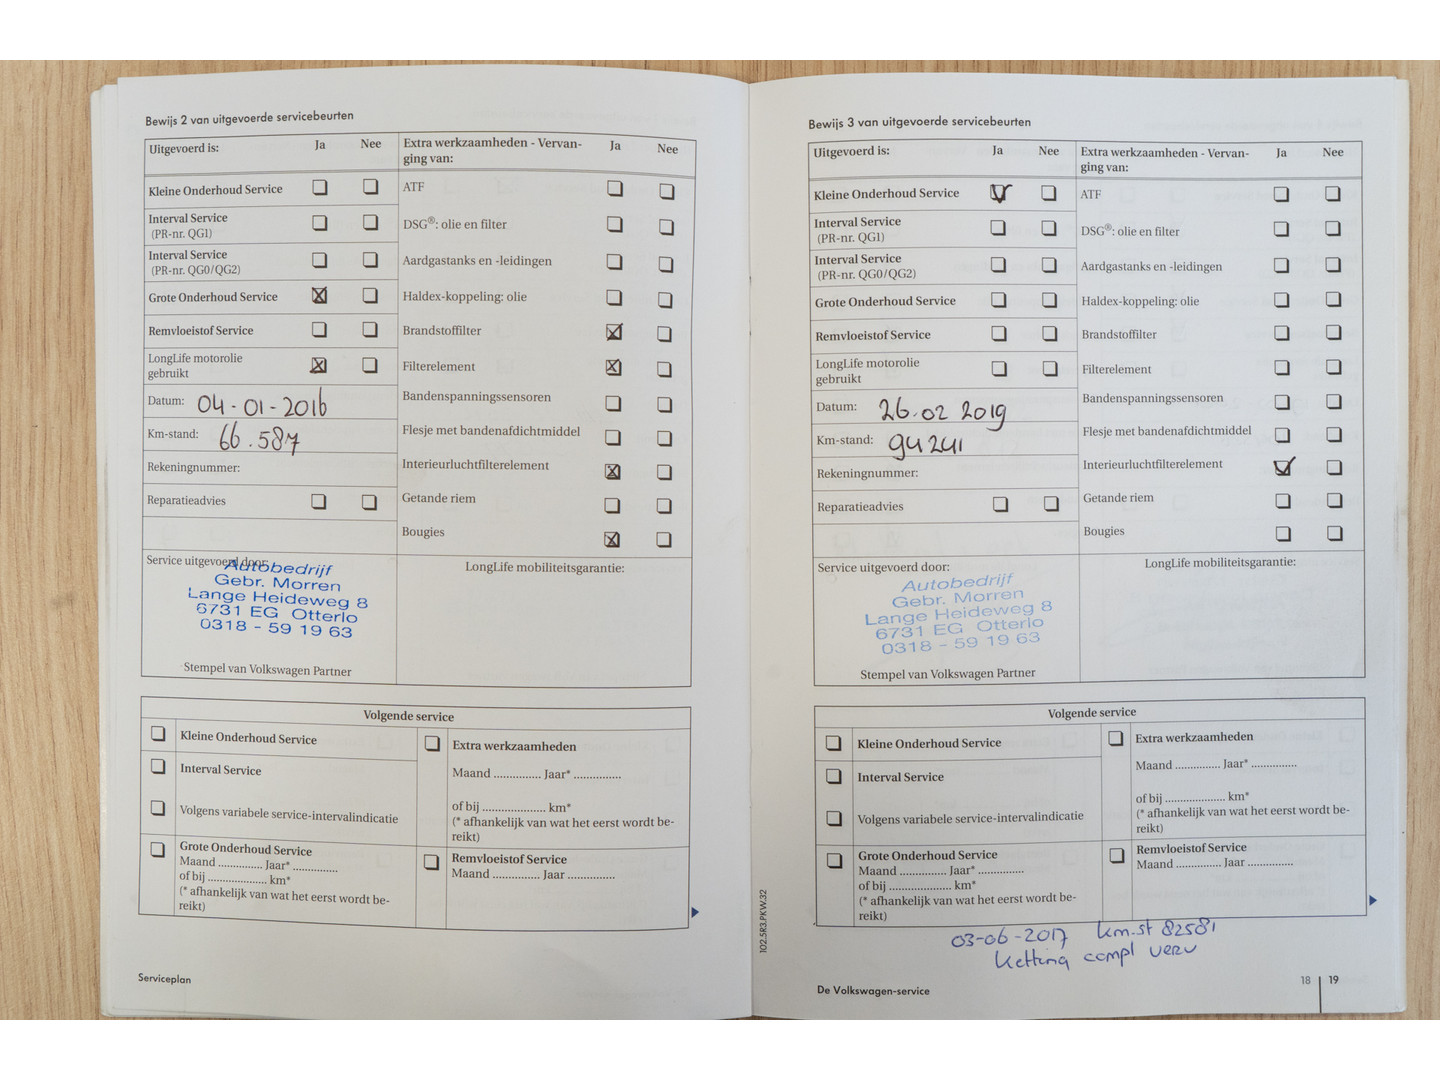 Bewijs 2 van uitgevoerde servicebeurten
Uitgevoerd is: Ja Nee
Kleine Onderhoud Service
Interval Service
(PR-nr. QG1)
Interval Service
(PR-nr. QG0/QG2)
Grote Onderhoud Service
Remvloeistof Service
LongLife motorolie
gebruikt
Datum: 04-01-2016
Km-stand: 66.587
Rekeningnummer:
Reparatieadvies
Extra werkzaamheden - Vervan- Ja Nee
ging van:
ATF
DSG®: olie en filter
Aardgastanks en -leidingen
Haldex-koppeling: olie
Brandstoffilter
Filterelement
Bandenspanningssensoren
Flesje met bandenafdichtmiddel
Interieurluchtfilterelement
Getande riem
Bougies
Service uitgevoerd door:
Autobedrijf
Gebr. Morren
Lange Heideweg 8
6731 EG Otterlo
0318 - 59 19 63
Stempel van Volkswagen Partner
LongLife mobiliteitsgarantie:
Volgende service
Kleine Onderhoud Service
Interval Service
Volgens variabele service-intervalindicatie
Grote Onderhoud Service
Maand .............. Jaar* ..............
of bij .................... km*
(* afhankelijk van wat het eerst wordt be-
reikt)
Extra werkzaamheden
Maand .............. Jaar* ..............
of bij .................... km*
(* afhankelijk van wat het eerst wordt be-
reikt)
Remvloeistof Service
Maand .............. Jaar ..............
Serviceplan
Bewijs 3 van uitgevoerde servicebeurten
Uitgevoerd is: Ja Nee
Kleine Onderhoud Service
Interval Service
(PR-nr. QG1)
Interval Service
(PR-nr. QG0/QG2)
Grote Onderhoud Service
Remvloeistof Service
LongLife motorolie
gebruikt
Datum: 26.02 2019
Km-stand: 94241
Rekeningnummer:
Reparatieadvies
Extra werkzaamheden - Vervan- Ja Nee
ging van:
ATF
DSG®: olie en filter
Aardgastanks en -leidingen
Haldex-koppeling: olie
Brandstoffilter
Filterelement
Bandenspanningssensoren
Flesje met bandenafdichtmiddel
Interieurluchtfilterelement
Getande riem
Bougies
Service uitgevoerd door:
Autobedrijf
Gebr. Morren
Lange Heideweg 8
6731 EG Otterlo
0318 - 59 19 63
Stempel van Volkswagen Partner
LongLife mobiliteitsgarantie:
Volgende service
Kleine Onderhoud Service
Interval Service
Volgens variabele service-intervalindicatie
Grote Onderhoud Service
Maand .............. Jaar* ..............
of bij .................... km*
(* afhankelijk van wat het eerst wordt be-
reikt)
Extra werkzaamheden
Maand .............. Jaar* ..............
of bij .................... km*
(* afhankelijk van wat het eerst wordt be-
reikt)
Remvloeistof Service
Maand .............. Jaar ..............
102.5R3.PKW.32
03-06-2017 km.st 82581
Ketting compl verv
De Volkswagen-service
18 19